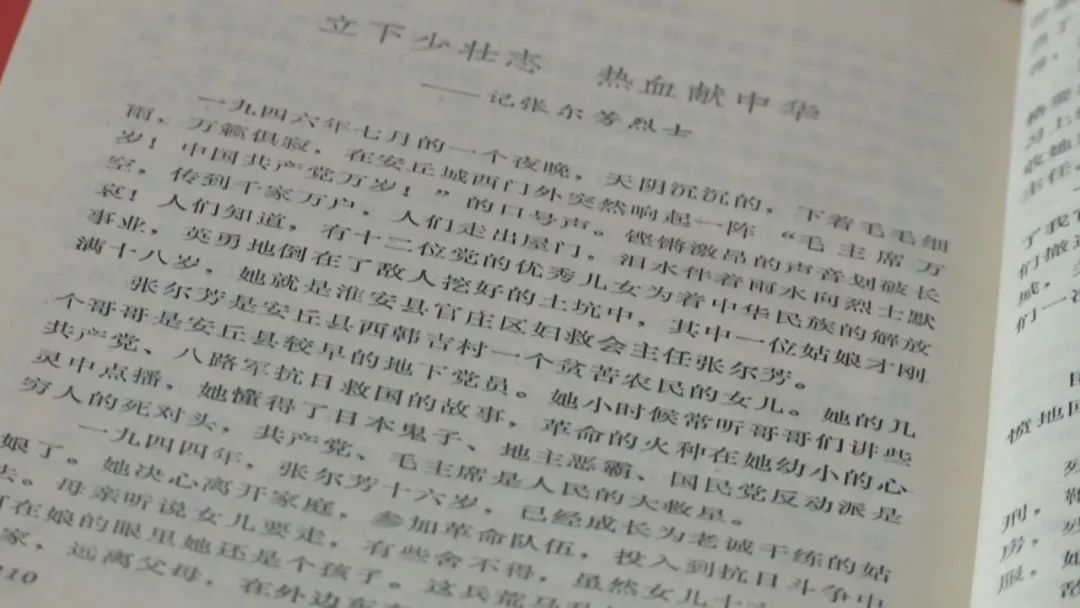 立下少壮志 热血献中华
——记张尔芳烈士
一九四六年七月的一个夜晚，天阴沉沉的，下着毛毛细
雨，万籁俱寂，在安丘城西门外突然响起一阵“毛主席万
岁！中国共产党万岁！”的口号声。铿锵激昂的声音划破长
空，传到千家万户，人们走出屋门。泪水伴着雨水向烈士默
哀！人们知道，有十二位党的优秀儿女为着中华民族的解放
事业，英勇地倒在了敌人挖好的土坑中，其中一位姑娘才刚
满十八岁，她就是淮安县官庄区妇救会主任张尔芳。
张尔芳是安丘县西韩吉村一个贫苦农民的女儿。她的几
个哥哥是安丘县较早的地下党员。她小时候常听哥哥们讲些
共产党、八路军抗日救国的故事，革命的火种在她幼小的心
灵中点播，她懂得了日本鬼子、地主恶霸、国民党反动派是
穷人的死对头，共产党、毛主席是人民的大救星。
一九四四年，张尔芳十六岁，已经成长为老诚干练的姑
娘了。她决心离开家庭，参加革命队伍，投入到抗日斗争中
去。母亲听说女儿要走，有些舍不得，虽然女儿十六
可在娘的眼里她还是个孩子。这兵荒马乱
家，远离父母，在外边东
210
习上
主任
了我
们撤
城，
们一次
愤地回
刑，
房，
服，如